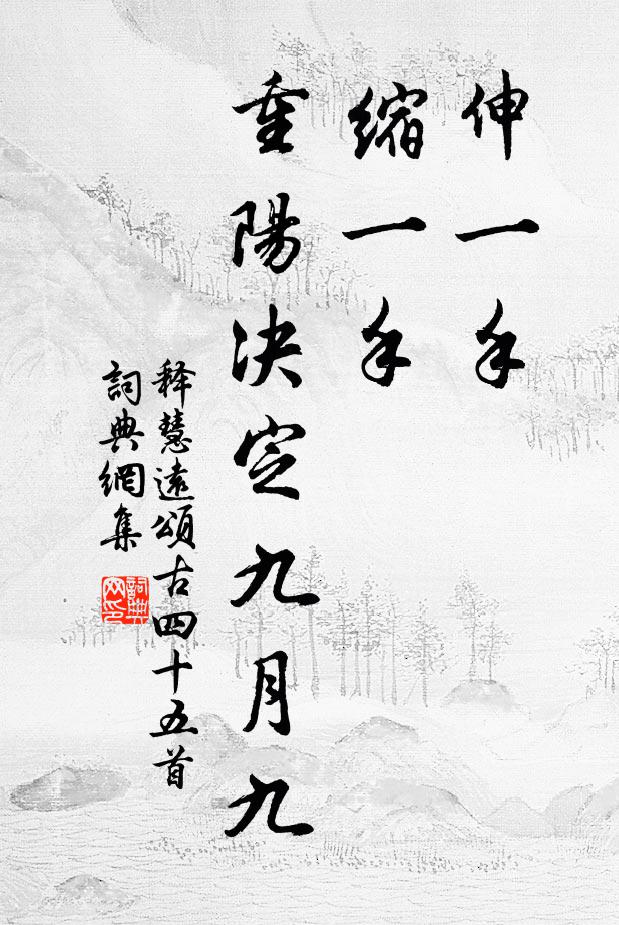 伸一手
縮一手
重陽決定九月九
释慧遠頌古四十五首
詞典網集
詞典网印